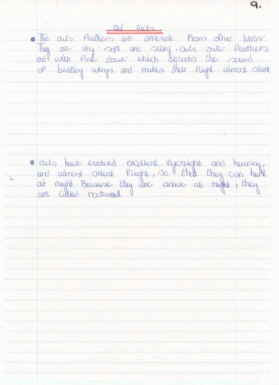 9.
Owl facts
The owls feathers are different from other birds.
They are very soft and silky owls outer feathers
are with fine down which deadens the sound
of beating wings and makes their flight almost silent
owls have evolved excellent eyesight and hearing,
and almost silent flight, so that they can hunt
at night. Because they are active at night, they
are called nocturnal.